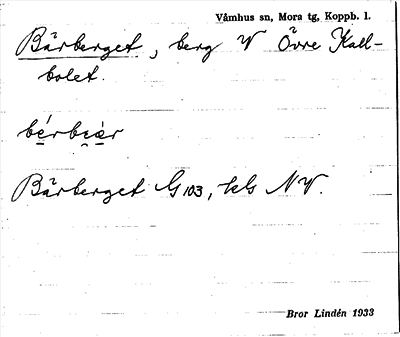 Våmhus sn, Mora tg, Koppb. l.
Bärberget, berg V Övre Kall-
bolet.
Bärberget G 103, kls NV.
Bror Lindén 1933